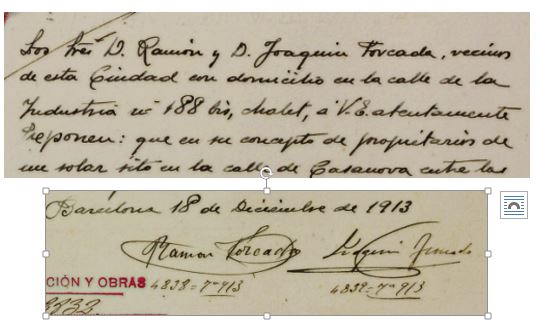 Los Sres D. Ramón y D. Joaquin Forcada, vecinos
de esta Ciudad con domicilio en la calle de la
Industria nº 188 bis, chalet, á V.E. atentamente
exponen: que en su concepto de propietarios de
un solar sito en la calle de Casanova entre las
Barcelona 18 de Diciembre de 1913
Ramon Forcada Joaquin Forcada
CIÓN Y OBRAS 4838=7ª913 4838=7ª913
3832